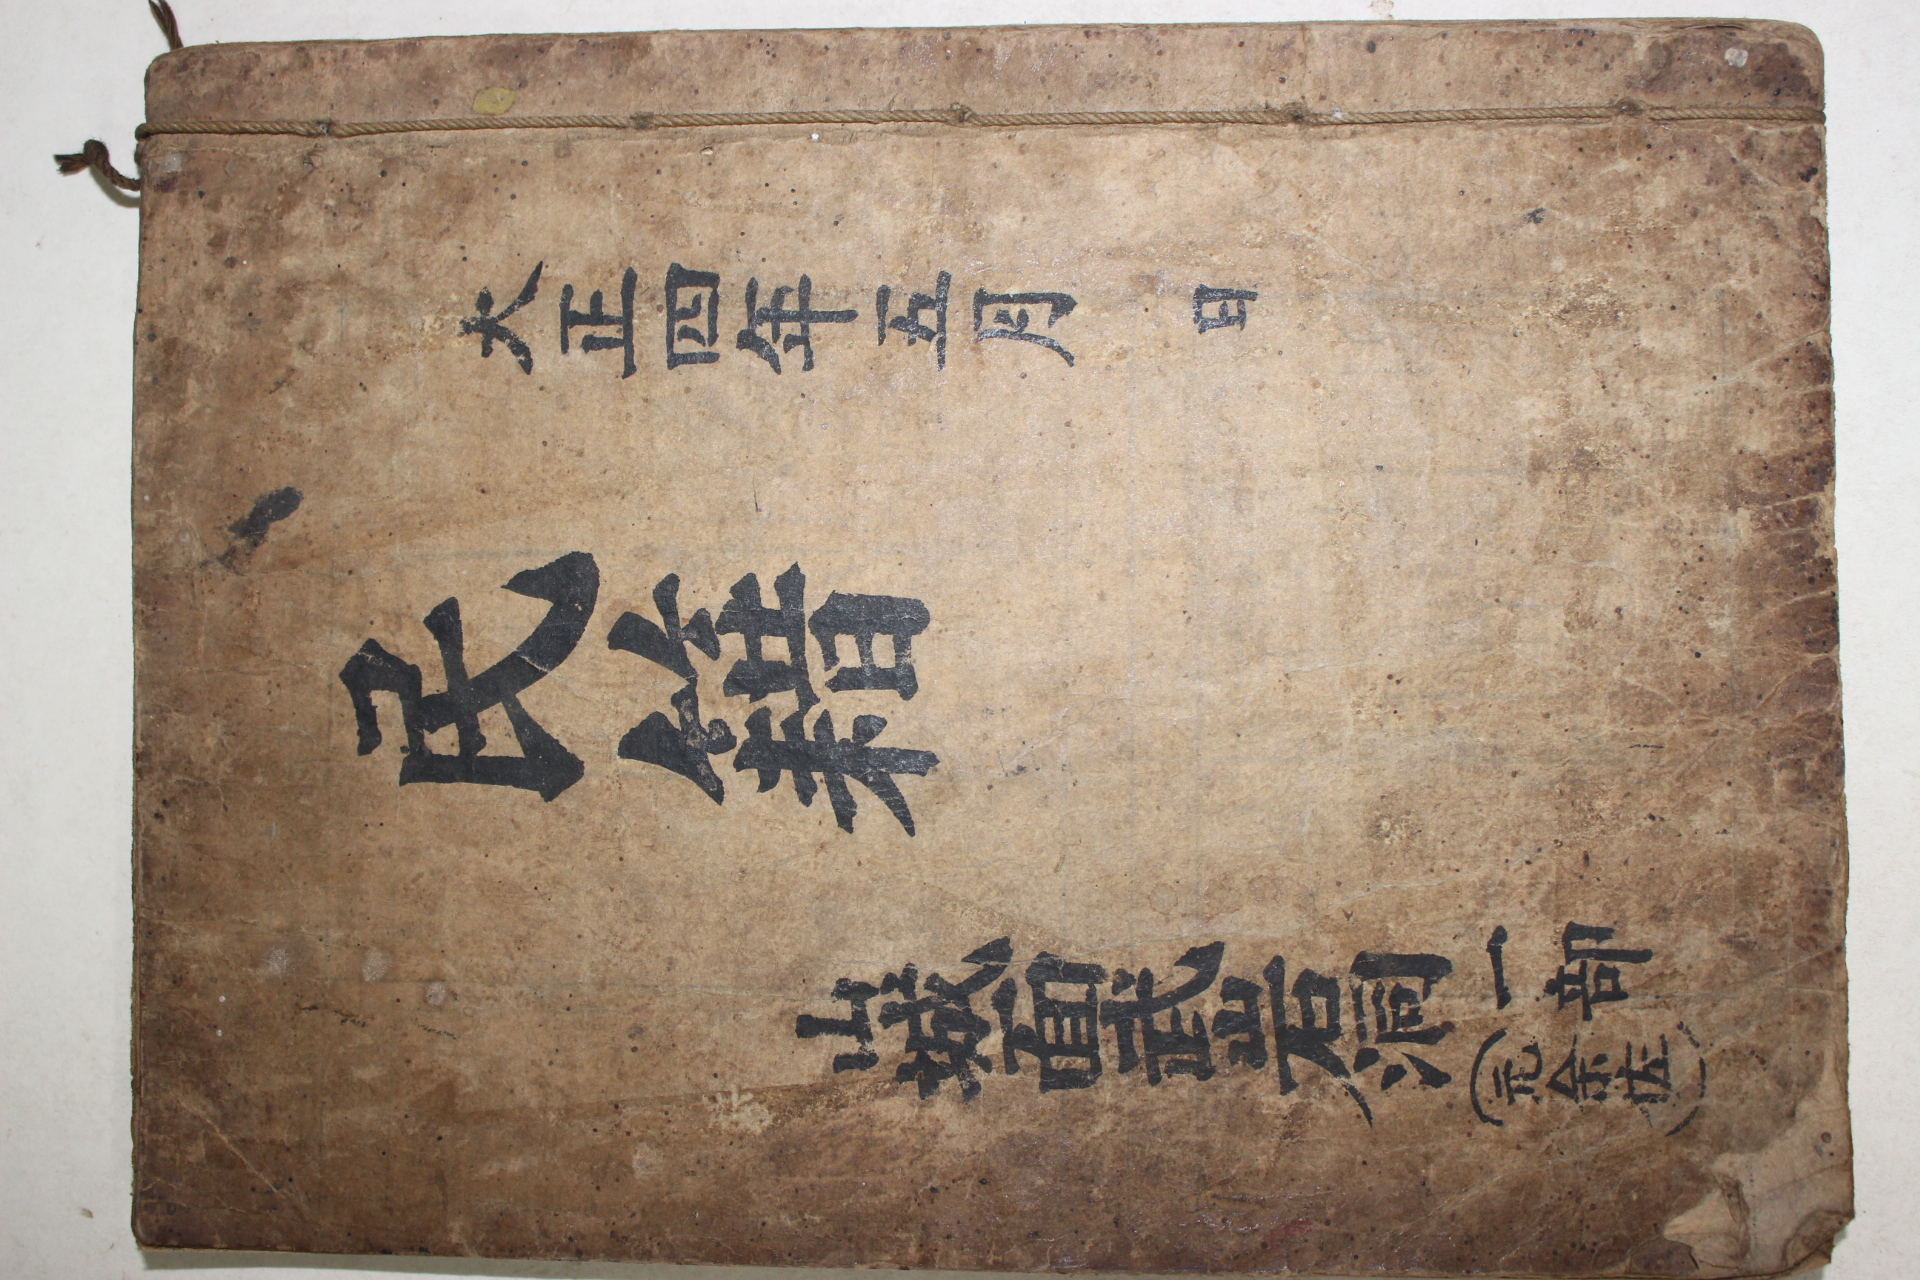 大正四年五月 日
民籍
山城面武岩洞
一部
(元余佐)